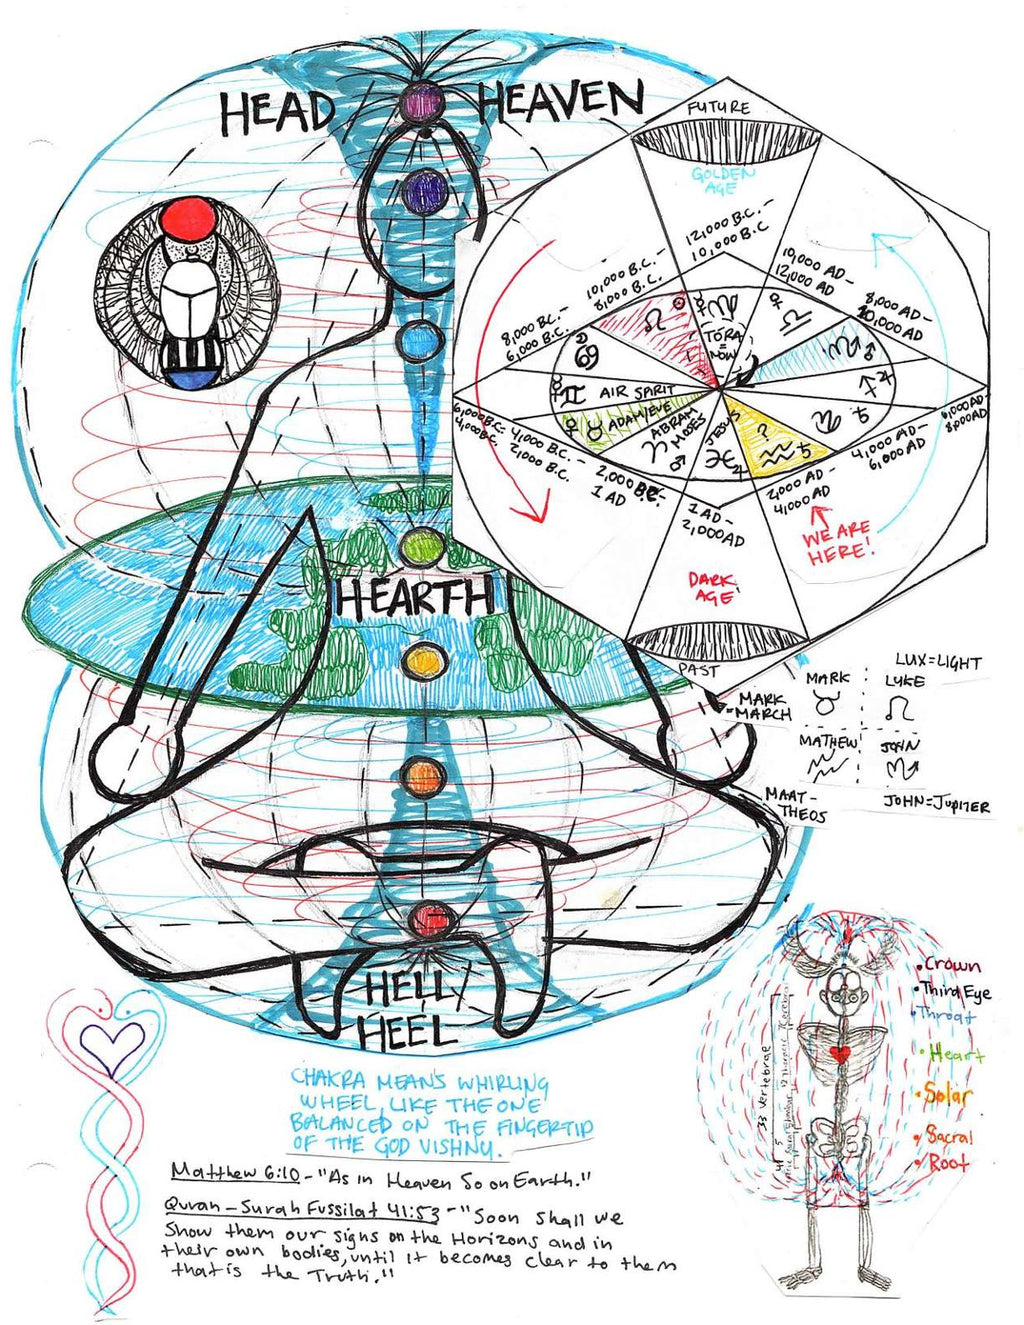 HEAD
HEAVEN
FUTURE
GOLDEN
AGE
12,000 B.C. -
10,000 B.C
10,000 B.C. -
8,000 B.C.
8,000 BC. -
6,000 B.C.
6,000 B.C. -
4,000 B.C.
4,000 B.C. -
2,000 B.C.
2,000 B.C. -
1 AD
1 AD -
2,000 AD
2,000 AD -
4,000 AD
4,000 AD -
6,000 AD
6,000 AD -
8,000 AD
8,000 AD -
10,000 AD
10,000 AD -
12,000 AD
♌
♍
♎
♏
♐
♑
♒
♓
♈
♉
♊
♋
(TORA
=
NOW)
AIR SPIRIT
ADAM/EVE
ABRAM
MOSES
JESUS
?
WE ARE
HERE!
DARK
AGE
PAST
HEARTH
MARK
=MARCH
LUX=LIGHT
MARK
LUKE
♉
♌
MATHEW
JOHN
♒
♏
MAAT-
THEOS
JOHN=JUPITER
HELL/
HEEL
CHAKRA MEANS WHIRLING
WHEEL, LIKE THE ONE
BALANCED ON THE FINGERTIP
OF THE GOD VISHNU.
Matthew 6:10 - "As in Heaven So on Earth."
Quran - Surah Fussilat 41:53 - "Soon shall we
Show them our signs on the Horizons and in
their own bodies, until it becomes clear to them
that is the Truth."
• Crown
• Third Eye
• Throat
• Heart
• Solar
• Sacral
• Root
33 Vertebrae